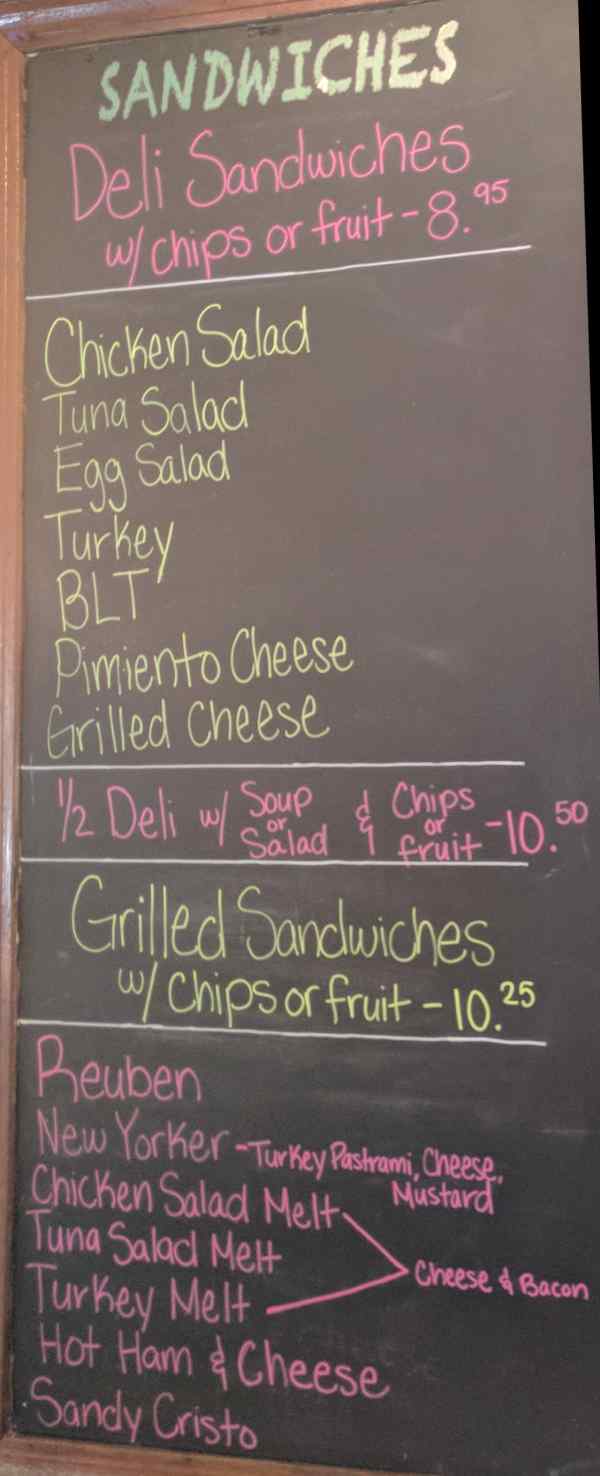 SANDWICHES
Deli Sandwiches
w/ chips or fruit - 8.95
Chicken Salad
Tuna Salad
Egg Salad
Turkey
BLT
Pimiento Cheese
Grilled Cheese
1/2 Deli w/ Soup or Salad & Chips or fruit - 10.50
Grilled Sandwiches
w/ chips or fruit - 10.25
Reuben
New Yorker - Turkey Pastrami, Cheese, Mustard
Chicken Salad Melt
Tuna Salad Melt
Cheese & Bacon
Turkey Melt
Hot Ham & Cheese
Sandy Cristo